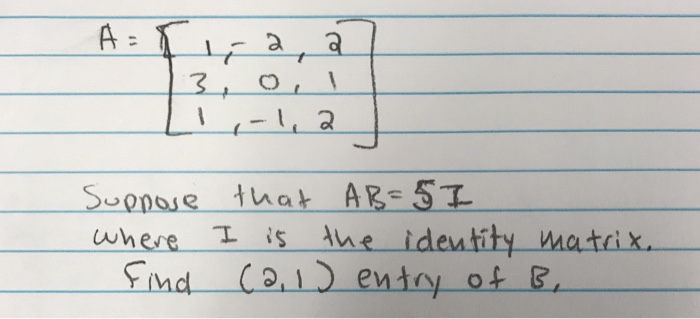 A = [ 1, -2, 2
3, 0, 1
1, -1, 2 ]
Suppose that AB = 5I
where I is the identity matrix.
Find (2,1) entry of B,